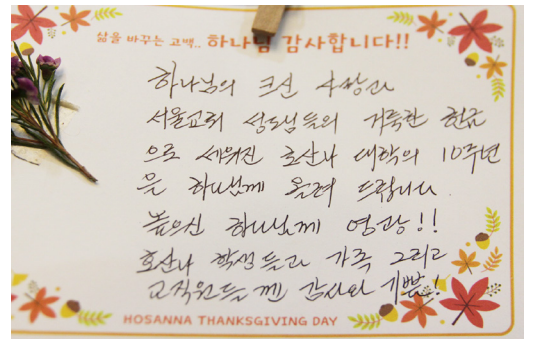 삶을 바꾸는 고백.. 하나님 감사합니다!!
하나님의 크신 사랑과
서울교회 성도님들의 거룩한 헌금
으로 세워진 호산나 대학의 10주년
을 하나님께 올려 드립니다.
높으신 하나님께 영광!!
호산나 학생들과 가족 그리고
교직원들께 감사와 기쁨!
HOSANNA THANKSGIVING DAY